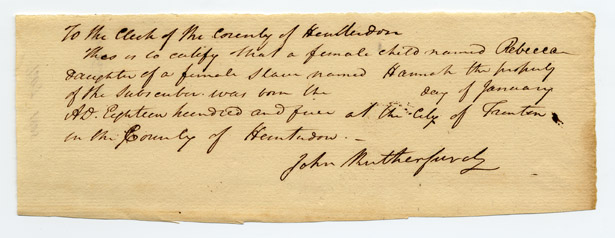 To the Clerk of the County of Hunterdon
This is to certify that a female child named Rebecca
Daughter of a female slave named Hannah the property
of the subscriber was born the day of January
A.D. Eighteen hundred and five at the City of Trenton
in the County of Hunterdon. —
John Rutherfurd